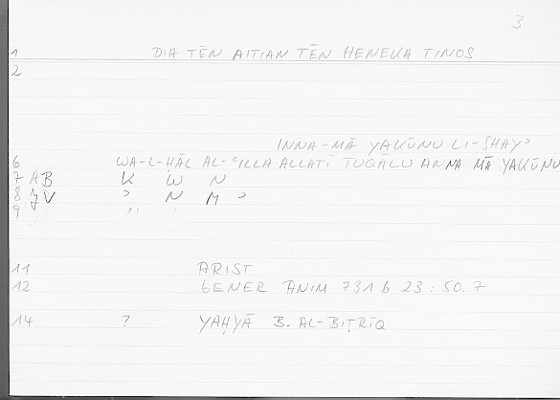 3
1 DIA TĒN AITIAN TĒN HENEKA TINOS
2
INNA-MĀ YAKŪNU LI-SHAYʾ
6 WA-L-ḤĀL AL-ʿILLA ALLATĪ TUQĀLU ANNA MĀ YAKŪNU
7 AB K W N
8 V ʾ N M ʾ
9 "
11 ARIST
12 GENER ANIM 731 b 23 : 50.7
14 ? YAḤYĀ B. AL-BIṬRĪQ